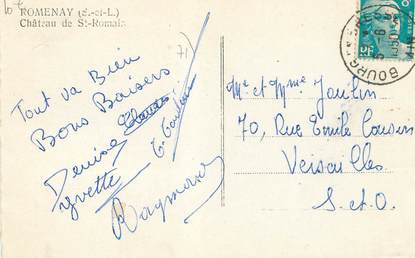 ROMENAY (S.-et-L.)
Château de St-Romain
71
Tout va Bien
Bons Baisers
Denise
Yvette
Raymond
Mr et Mme Joulin
70, Rue Emile Cousin
Versailles
S.et.O.